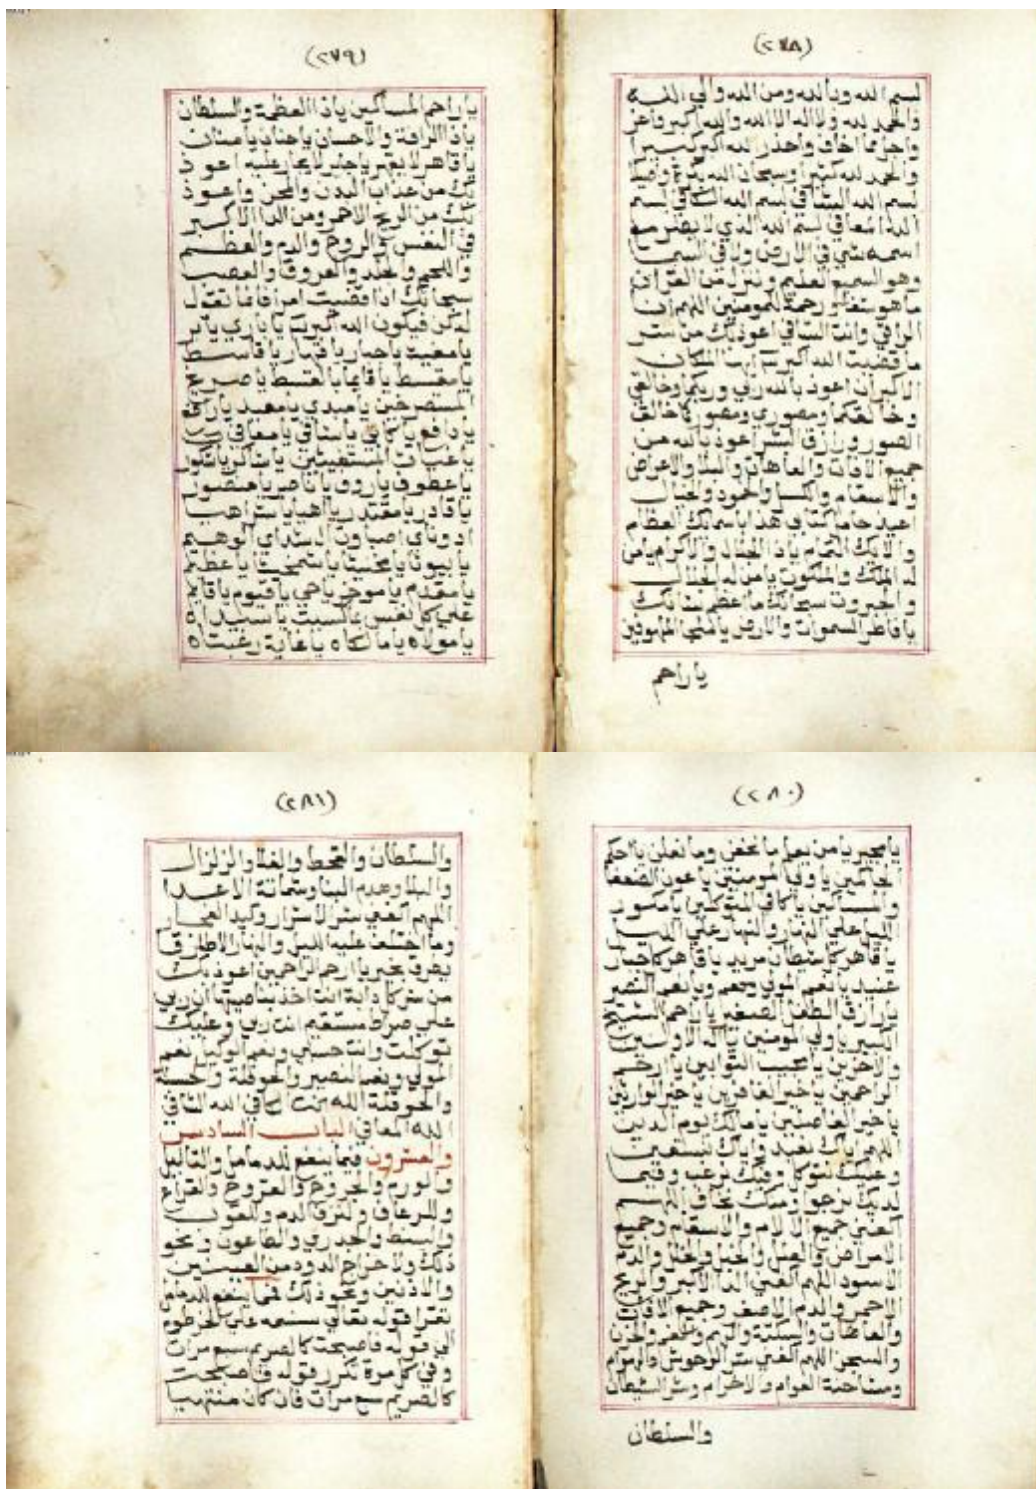 (٢٧٨)
بسم الله وبالله ومن الله والي الله
والحمد لله ولا اله الا الله والله اكبر واعز
واجل مما اخاف واحذر الله اكبر كبيرا
والحمد لله كثيرا وسبحان الله بكرة واصيلا
بسم الله الشافي بسم الله الكافي بسم
الله المعافي بسم الله الذي لا يضر مع
اسمه شي في الارض ولا في السما
وهو السميع العليم وننزل من القران
ما هو شفا ورحمة للمومنين اللهم ان
الراقي وانت الشافي اعوذ بك من شر
ما قضيت الله اكبر
الاكبران اعوذ بالله ربي وربكما وخالقي
وخالقكما ومصوري ومصوركما خالق
الصور ورازق البشر اعوذ بالله من
جميع الافات والعاهات والبلا والاعراض
والاسقام والكسل والخمود وخبال
اعيذ حامل كتابي هذا باسمائك العظام
والايك التمام ياذا الجلال والاكرام يا من
له الملك والملكوت يا من له الجلال
والجبروت سبحانك ما اعظم شانك
يا فاطر السموات والارض يا ملجا الملهوفين
يا راحم
(٢٧٩)
يا راحم المساكين ياذا العظمة والسلطان
ياذا الرافة والاحسان يا حنان يا منان
يا قاهر لا يقهر يا جابر لا يجار عليه اعوذ
بك من عذاب البدن والمحن واعوذ
بك من الريح الاحمر ومن الدا الاكبر
في النفس والروح والدم والعظم
واللحم والجلد والعروق والعصب
سبحانك اذا قضيت امرا فانما تقول
له كن فيكون الله اكبر يا باري يا بر
يا مغيث يا جبار يا قهار يا قاسط
يا مقسط يا قايما بالقسط يا صريخ
المستصرخين يا مبدي يا معيد يا
يا دافع يا كافي يا شافي يا معافي
يا غياث المستغيثين يا شاكر يا شكور
يا عطوف يا روف يا ناصر يا منصور
يا قادر يا مقتدر يا اهيا يا شراهيا
ادوناي اصباوت ال شداي الوهيم
يا عظيم
يا مقدم يا موخر يا حي يا قيوم يا قايم
علي كل نفس بما كسبت يا سيداه
يا مولاه يا مالكاه يا غاية رغبتاه
(٢٨٠)
يا مجير يا من يعلم ما نخفي وما نعلن يا احكم
الحاكمين يا ولي المومنين يا عون الضعفا
والمساكين يا كافي المتوكلين يا مكور
الليل علي النهار والنهار علي الليل
يا قاهر كل شيطان مريد يا قاهر كل جبار
عنيد يا نعم المولي ويا نعم النصير
يا رازق الطفل الصغير يا راحم الشيخ
الكبير يا ولي المومنين يا اله الاولين
والاخرين يا حبيب التوابين يا ارحم
الراحمين يا خير الغافرين يا خير الوارثين
يا خير الفاصلين يا مالك يوم الدين
اللهم اياك نعبد واياك نستعين
وعليك نتوكل وفيك نرغب وفيما
لديك نرجوا ومنك نخاف اللهم
اكفني جميع الالام والاسقام وجميع
الامراض والعلل والخبل والدم
الاسود اللهم اكفني الدا الاكبر والريح
الاحمر والدم الاصفر وجميع الافات
والعاهات والسكتة والهم والغم والحزن
والسجن اللهم اكفني شر الوحوش والهوام
ومشاحنة العوام والاخرام وشر الشيطان
والسلطان
(٢٨١)
والسلطان والقحط والغلا والزلزال
والبلا وهدم البنا وشماتة الاعدا
اللهم اكفني شر الاشرار وكيد الفجار
وما اختلف عليه الليل والنهار الا طارق
يطرق بخير يا ارحم الراحمين اعوذ بك
من شر كل دابة انت اخذ بناصيتها ان ربي
علي صراط مستقيم انت ربي وعليك
توكلت وانت حسبي ونعم الوكيل نعم
المولي ونعم النصير والحوقلة وحسبنا
والحوقلة الله الكافي الله الشافي
الله المعافي الباب السادس
والعشرون فيما ينفع للدمامل والثاليل
والورم والجروح والقروح والقراع
وللرعاف ولنزف الدم وللقوب
والجدري والطاعون ونحو
ذلك ولاخراج الدود من العينين
والاذنين ونحو ذلك فمما ينفع للدمامل
تقرا قوله تعالي سنسمه علي الخرطوم
الي قوله فاصبحت كالصريم سبع مرات
وفي كل مرة تكرر قوله فاصبحت
كالصريم سبع مرات فان كان منتهيا